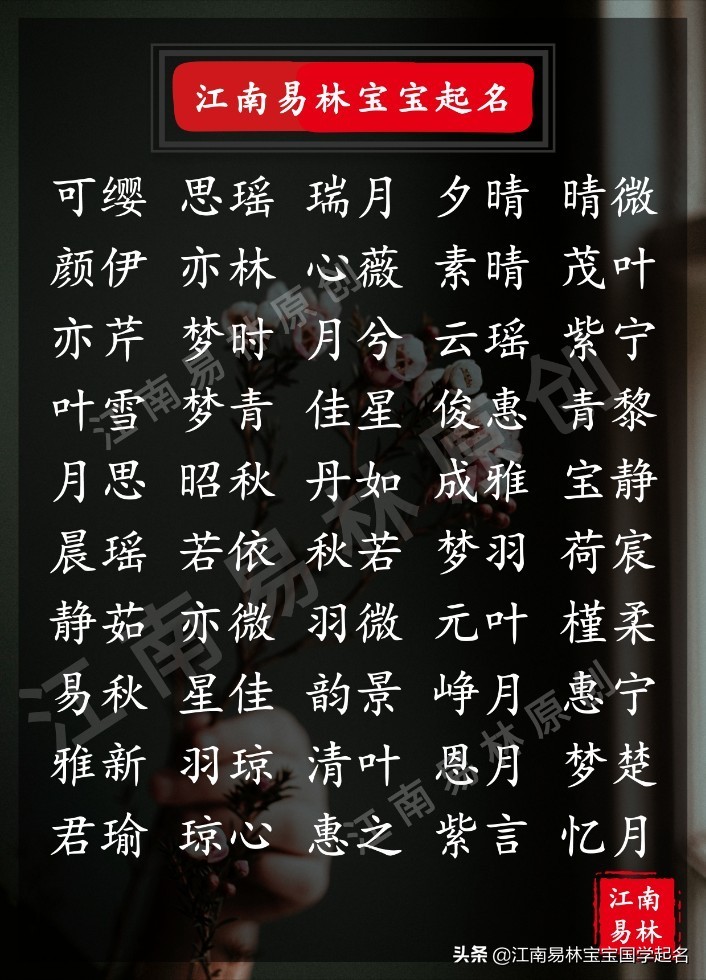 江南易林宝宝起名
可缨 思瑶 瑞月 夕晴 晴微
颜伊 亦林 心薇 素晴 茂叶
亦芹 梦时 月兮 云瑶 紫宁
叶雪 梦青 佳星 俊惠 青黎
月思 昭秋 丹如 成雅 宝静
晨瑶 若依 秋若 梦羽 荷宸
静茹 亦微 羽微 元叶 槿柔
易秋 星佳 韵景 峥月 惠宁
雅新 羽琼 清叶 恩月 梦楚
君瑜 琼心 惠之 紫言 忆月
江南易林原创
江南易林原创
江南易林原创
江南
易林
头条 @江南易林宝宝国学起名